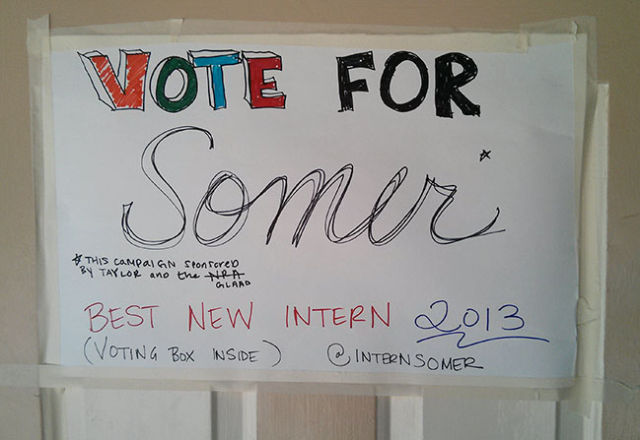 VOTE FOR
Somer*
*THIS CAMPAIGN sponsored
BY TAYLOR and the NRA
GLAAD
BEST NEW INTERN 2013
(VOTING BOX INSIDE) @INTERNSOMER